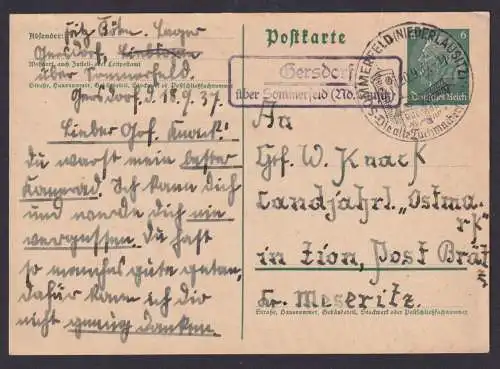 Absender: Fritz Böhm. Lager
Gersdorf,
Wohnort, auch Zustell- oder Leitpostamt
über Sommerfeld.
Straße, Hausnummer, Gebäudeteil, Stockwerk od. Postschließfachnummer
Gersdorf. d. 18.9.37.
Lieber Grf. Knack!
du warst mein bester
Kamerad. Ich kann dich
und werde dich nie
vergessen. Du hast
so manches gute getan,
dafür kann ich dir
nicht genug danken.
Postkarte
6
Deutsches Reich
SOMMERFELD (NIEDERLAUSITZ)
Die alte Tuchmacher
Gersdorf
über Sommerfeld (Nd. Lausitz)
An
Grf. W. Knack
Landjahrl. „Ostma-
rk"
in Zion, Post Brät
Kr. Meseritz.
Straße, Hausnummer, Gebäudeteil, Stockwerk oder Postschließfachnummer